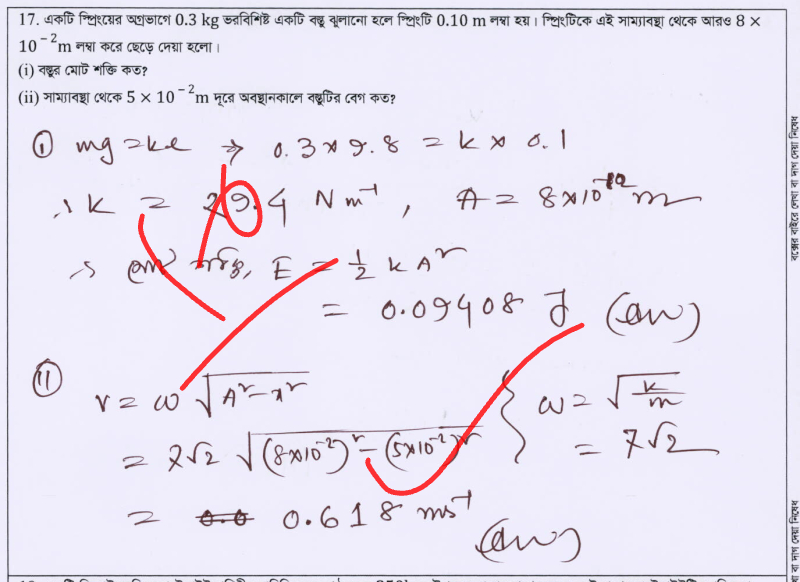 17. একটি স্প্রিংয়ের অগ্রভাগে 0.3 kg ভরবিশিষ্ট একটি বস্তু ঝুলানো হলে স্প্রিংটি 0.10 m লম্বা হয়। স্প্রিংটিকে এই সাম্যাবস্থা থেকে আরও 8 ×
10⁻²m লম্বা করে ছেড়ে দেয়া হলো।
(i) বস্তুর মোট শক্তি কত?
(ii) সাম্যাবস্থা থেকে 5 × 10⁻²m দূরে অবস্থানকালে বস্তুটির বেগ কত?
(i) mg = ke → 0.3 × 9.8 = k × 0.1
∴ k = 29.4 Nm⁻¹, A = 8×10⁻² m
∴ মোট শক্তি, E = ½ k A²
= 0.09408 J (Ans)
(ii) v = ω √(A² − x²) ω = √(k/m)
= 7√2 √((8×10⁻²)² − (5×10⁻²)²) = 7√2
= 0.618 ms⁻¹
(Ans)
বক্সের বাইরে লেখা বা দাগ দেয়া নিষেধ
বা দাগ দেয়া নিষেধ